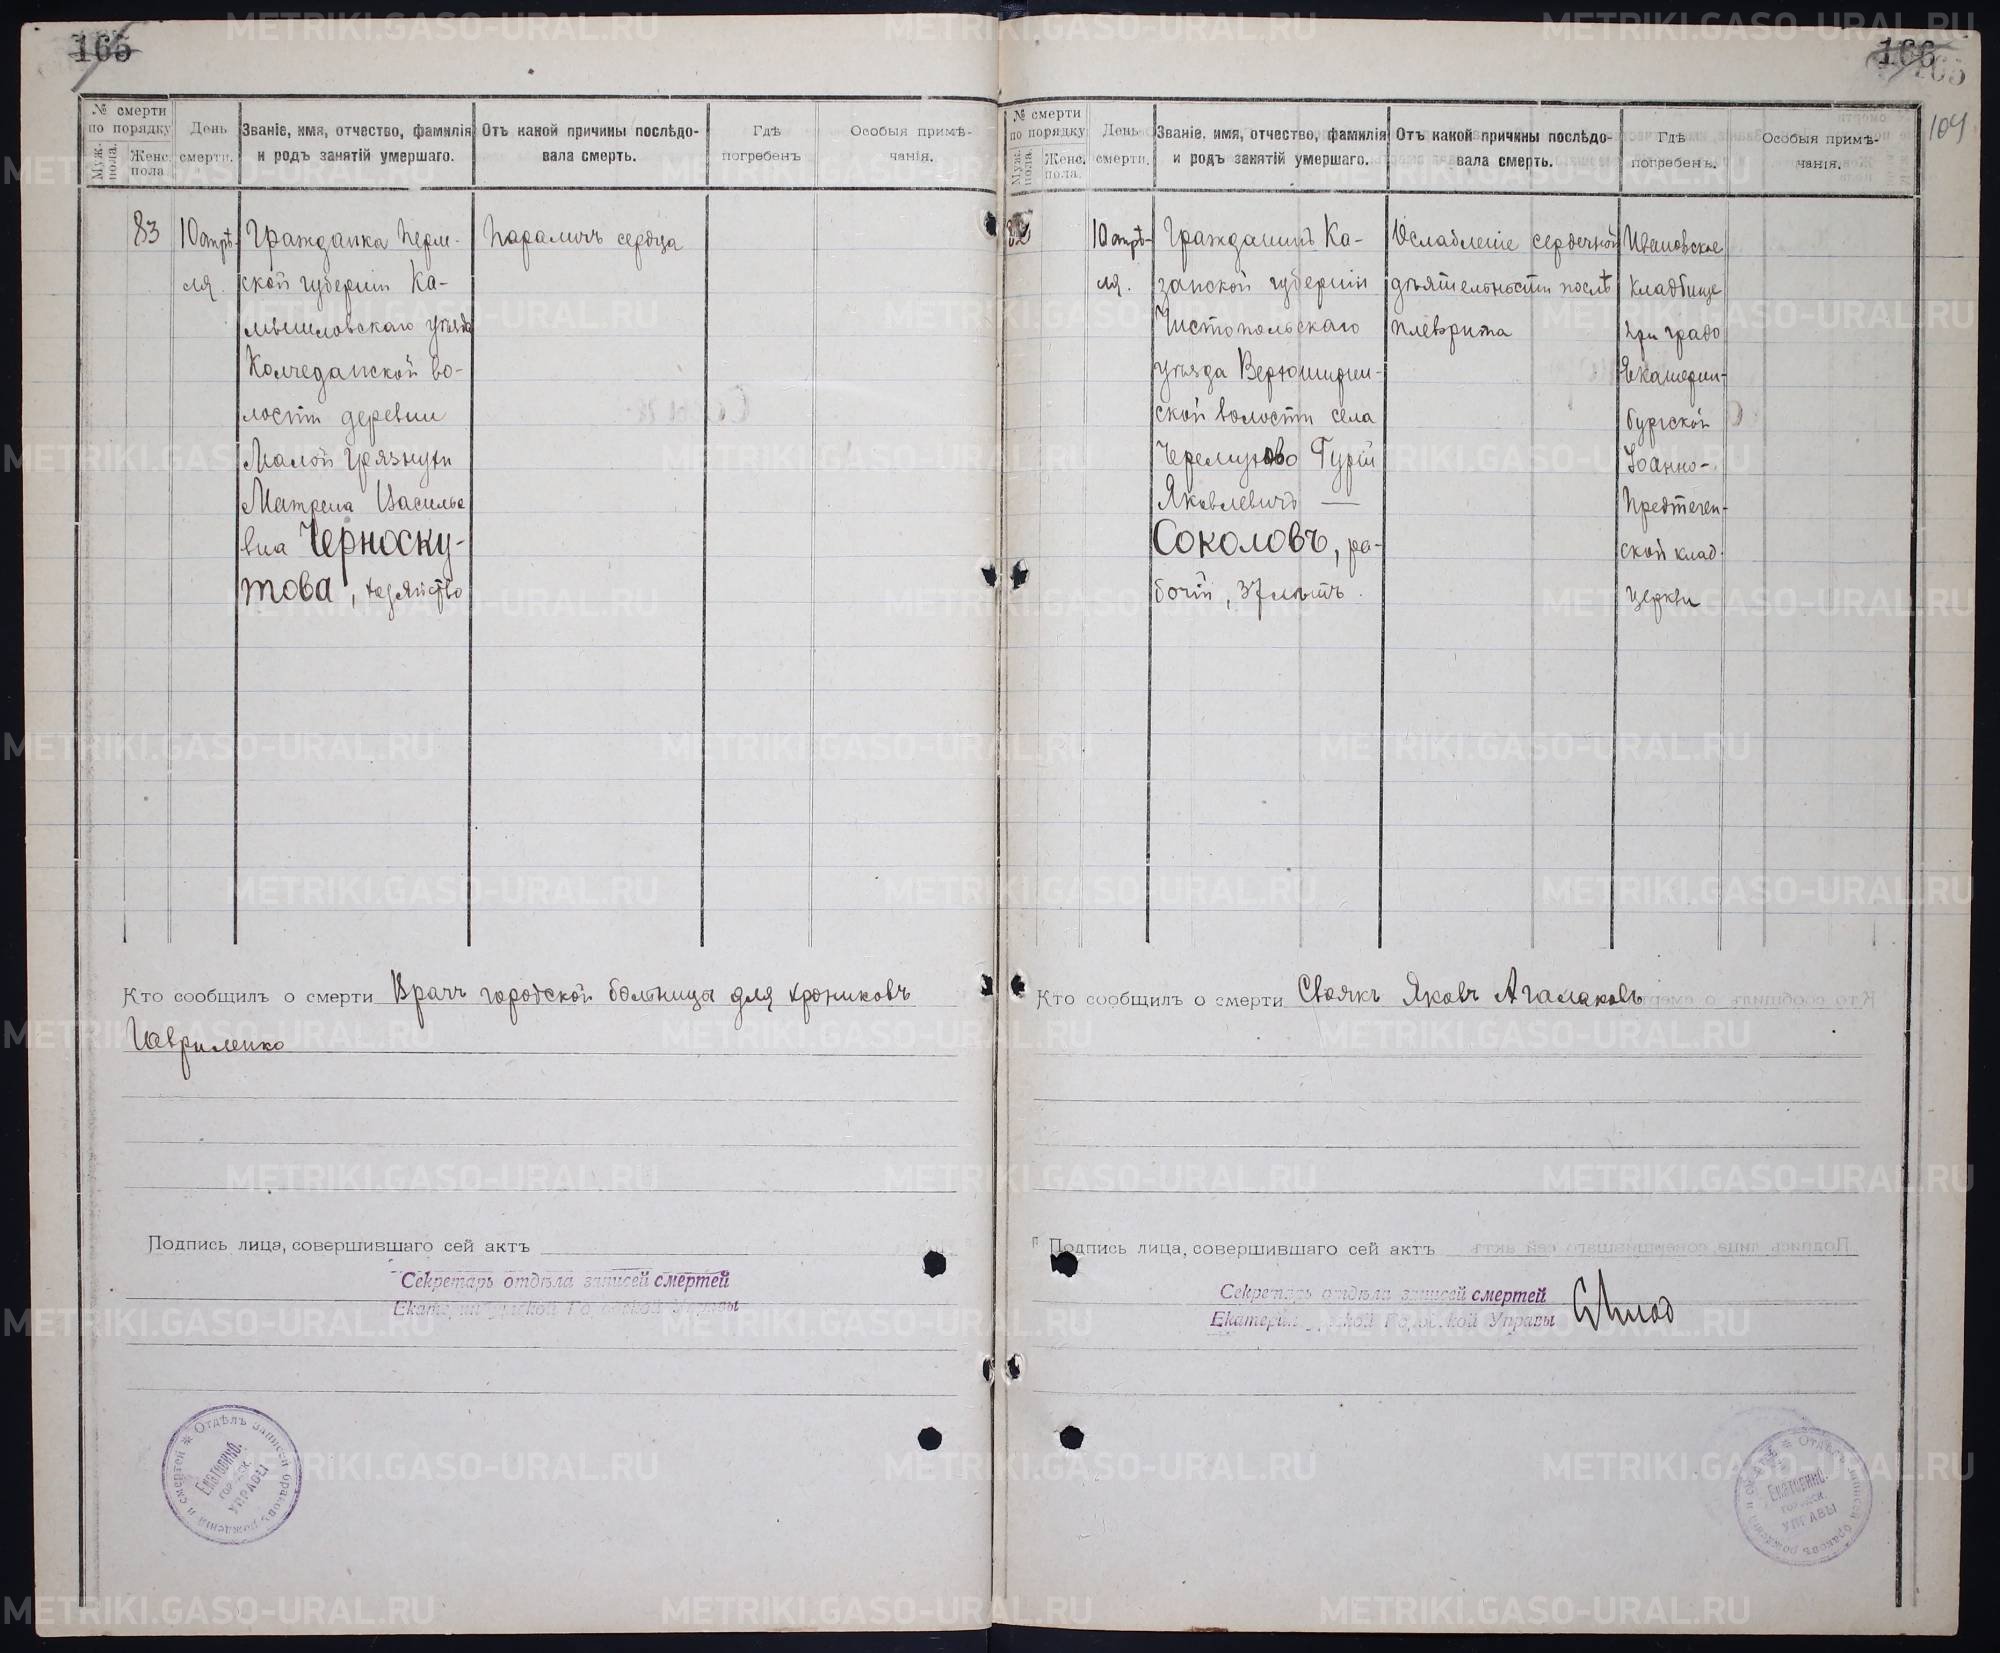 165
№ смерти
по порядку
Муж. пола.
Женс. пола.
День смерти.
Званіе, имя, отчество, фамилія
и родъ занятій умершаго.
Отъ какой причины послѣдо-
вала смерть.
Гдѣ
погребенъ
Особыя примѣ-
чанія.
83
10 апрѣ-
ля.
Гражданка Перм-
ской губерніи Ка-
мышловскаго уѣзда
Колчеданской во-
лости деревни
Малой Грязнухи
Матрена Василье
вна Черноску-
това, хозяйство
Параличъ сердца
Кто сообщилъ о смерти Врачъ городской больницы для хрониковъ
Гавриленко
Подпись лица, совершившаго сей актъ
Секретарь отдѣла записей смертей
Екатеринбургской Городской Управы
Отдѣлъ записей браковъ рожденій и смертей
Екатеринб.
городск.
Управы
166
165
104
№ смерти
по порядку
Муж. пола.
Женс. пола.
День смерти.
Званіе, имя, отчество, фамилія
и родъ занятій умершаго.
Отъ какой причины послѣдо-
вала смерть.
Гдѣ
погребенъ.
Особыя примѣ-
чанія.
10 апрѣ-
ля.
Гражданинъ Ка-
занской губерніи
Чистопольскаго
уѣзда
ской волости села
Черемухово Гурій
Яковлевичъ —
Соколовъ, ра-
бочій, 37 лѣтъ.
Ослабленіе сердечной
дѣятельности послѣ
плеврита
Ивановское
кладбище
при градо
Екатерин-
бургской
Іоанно-
Предтечен-
ской клад.
церкви
Кто сообщилъ о смерти Своякъ Яковъ Агалаковъ
Подпись лица, совершившаго сей актъ
Секретарь отдѣла записей смертей
Екатеринбургской Городской Управы
Отдѣлъ записей браковъ рожденій и смертей
Екатеринб.
городск.
Управы
METRIKI.GASO-URAL.RU